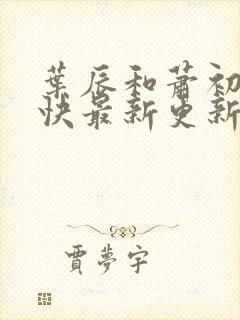 葉辰和蕭初
快最新更新
賈夢宇